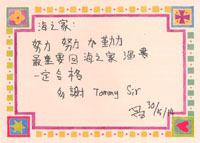 海之家：
努力 努力 加勤力
最重要回海之家溫書
一定合格
多謝 Tommy Sir
30/15/14